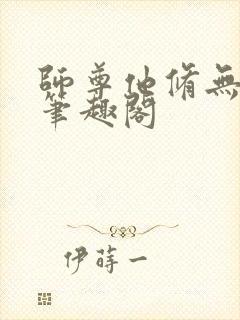 師尊他脩無
筆趣閣
伊蒔一